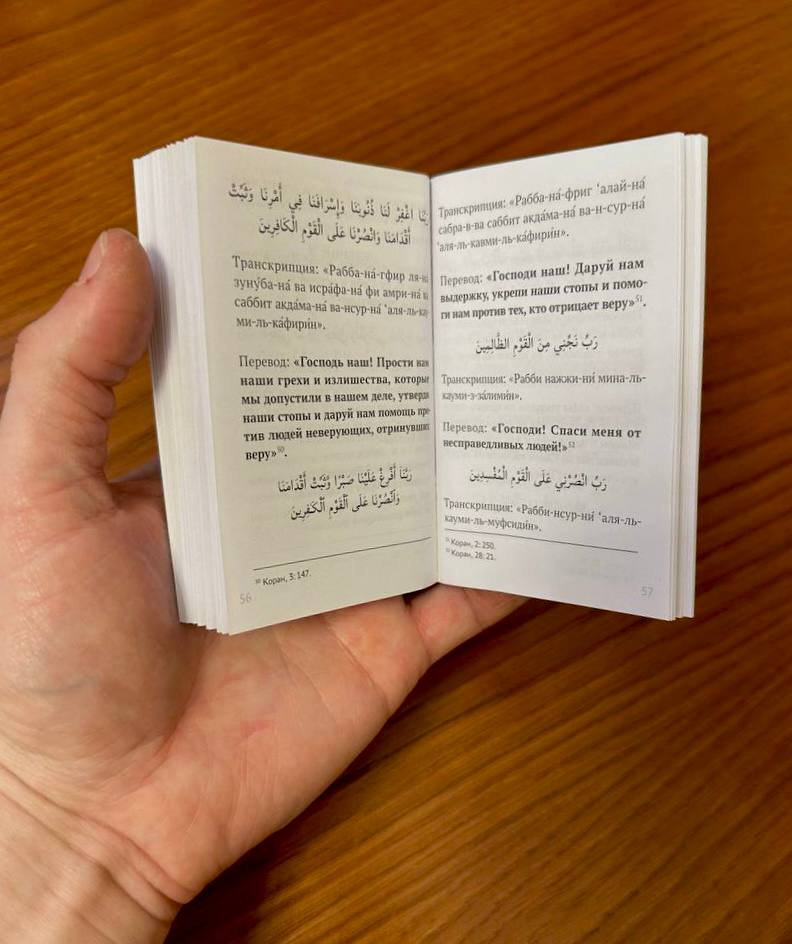 رَبَّنَا اغْفِرْ لَنَا ذُنُوبَنَا وَإِسْرَافَنَا فِي أَمْرِنَا وَثَبِّتْ
أَقْدَامَنَا وَانْصُرْنَا عَلَى الْقَوْمِ الْكَافِرِينَ
Транскрипция: «Рабба-на́-гфир ля-на́
зуну́ба-на́ ва исра́фа-на́ фи амри-на́ ва
саббит акда́ма-на́ ва-нсур-на́ ‘аля-ль-кау-
ми-ль-ка́фири́н».
Перевод: «Господь наш! Прости нам
наши грехи и излишества, которые
мы допустили в нашем деле, утверди
наши стопы и даруй нам помощь про-
тив людей неверующих, отринувших
веру»⁵⁰.
رَبَّنَا أَفْرِغْ عَلَيْنَا صَبْرًا وَثَبِّتْ أَقْدَامَنَا
وَانْصُرْنَا عَلَى الْقَوْمِ الْكَفِرِينَ
⁵⁰ Коран, 3: 147.
56
Транскрипция: «Рабба-на́-фриг ‘алай-на́
сабра-в-ва саббит акда́ма-на́ ва-н-сур-на́
‘аля-ль-кавми-ль-ка́фири́н».
Перевод: «Господи наш! Даруй нам
выдержку, укрепи наши стопы и помо-
ги нам против тех, кто отрицает веру»⁵¹.
رَبِّ نَجِّنِي مِنَ الْقَوْمِ الظَّالِمِينَ
Транскрипция: «Рабби нажжи-ни́ мина-ль-
кауми-з-за́лими́н».
Перевод: «Господи! Спаси меня от
несправедливых людей!»⁵²
رَبِّ انْصُرْنِي عَلَى الْقَوْمِ الْمُفْسِدِينَ
Транскрипция: «Рабби-нсур-ни́ ‘аля-ль-
кауми-ль-муфсиди́н».
⁵¹ Коран, 2: 250.
⁵² Коран, 28: 21.
57